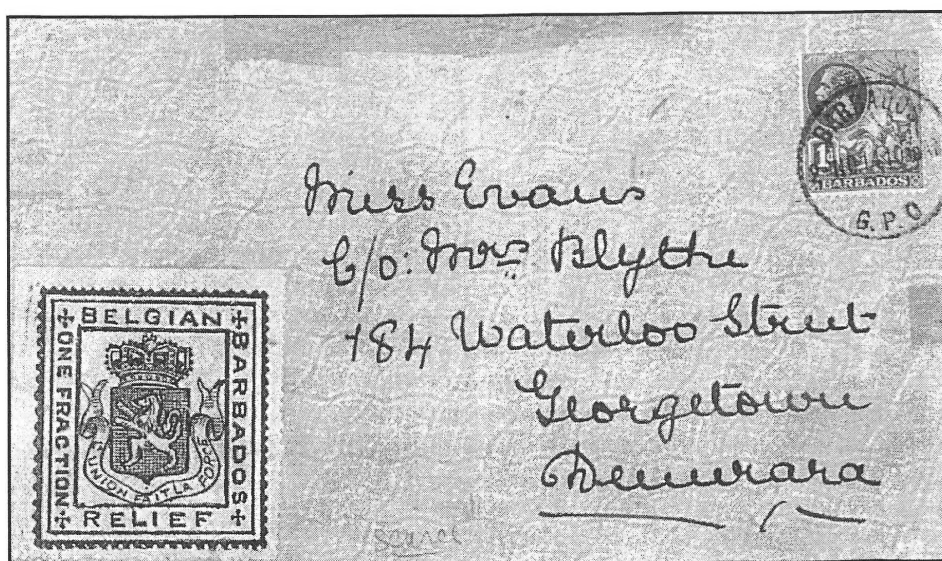 1d
BARBADOS
BARBADOS
G.P.O
Miss Evans
C/o: Mrs Blythe
184 Waterloo Street
Georgetown
Demerara
BELGIAN
BARBADOS
RELIEF
ONE FRACTION
L'UNION FAIT LA FORCE